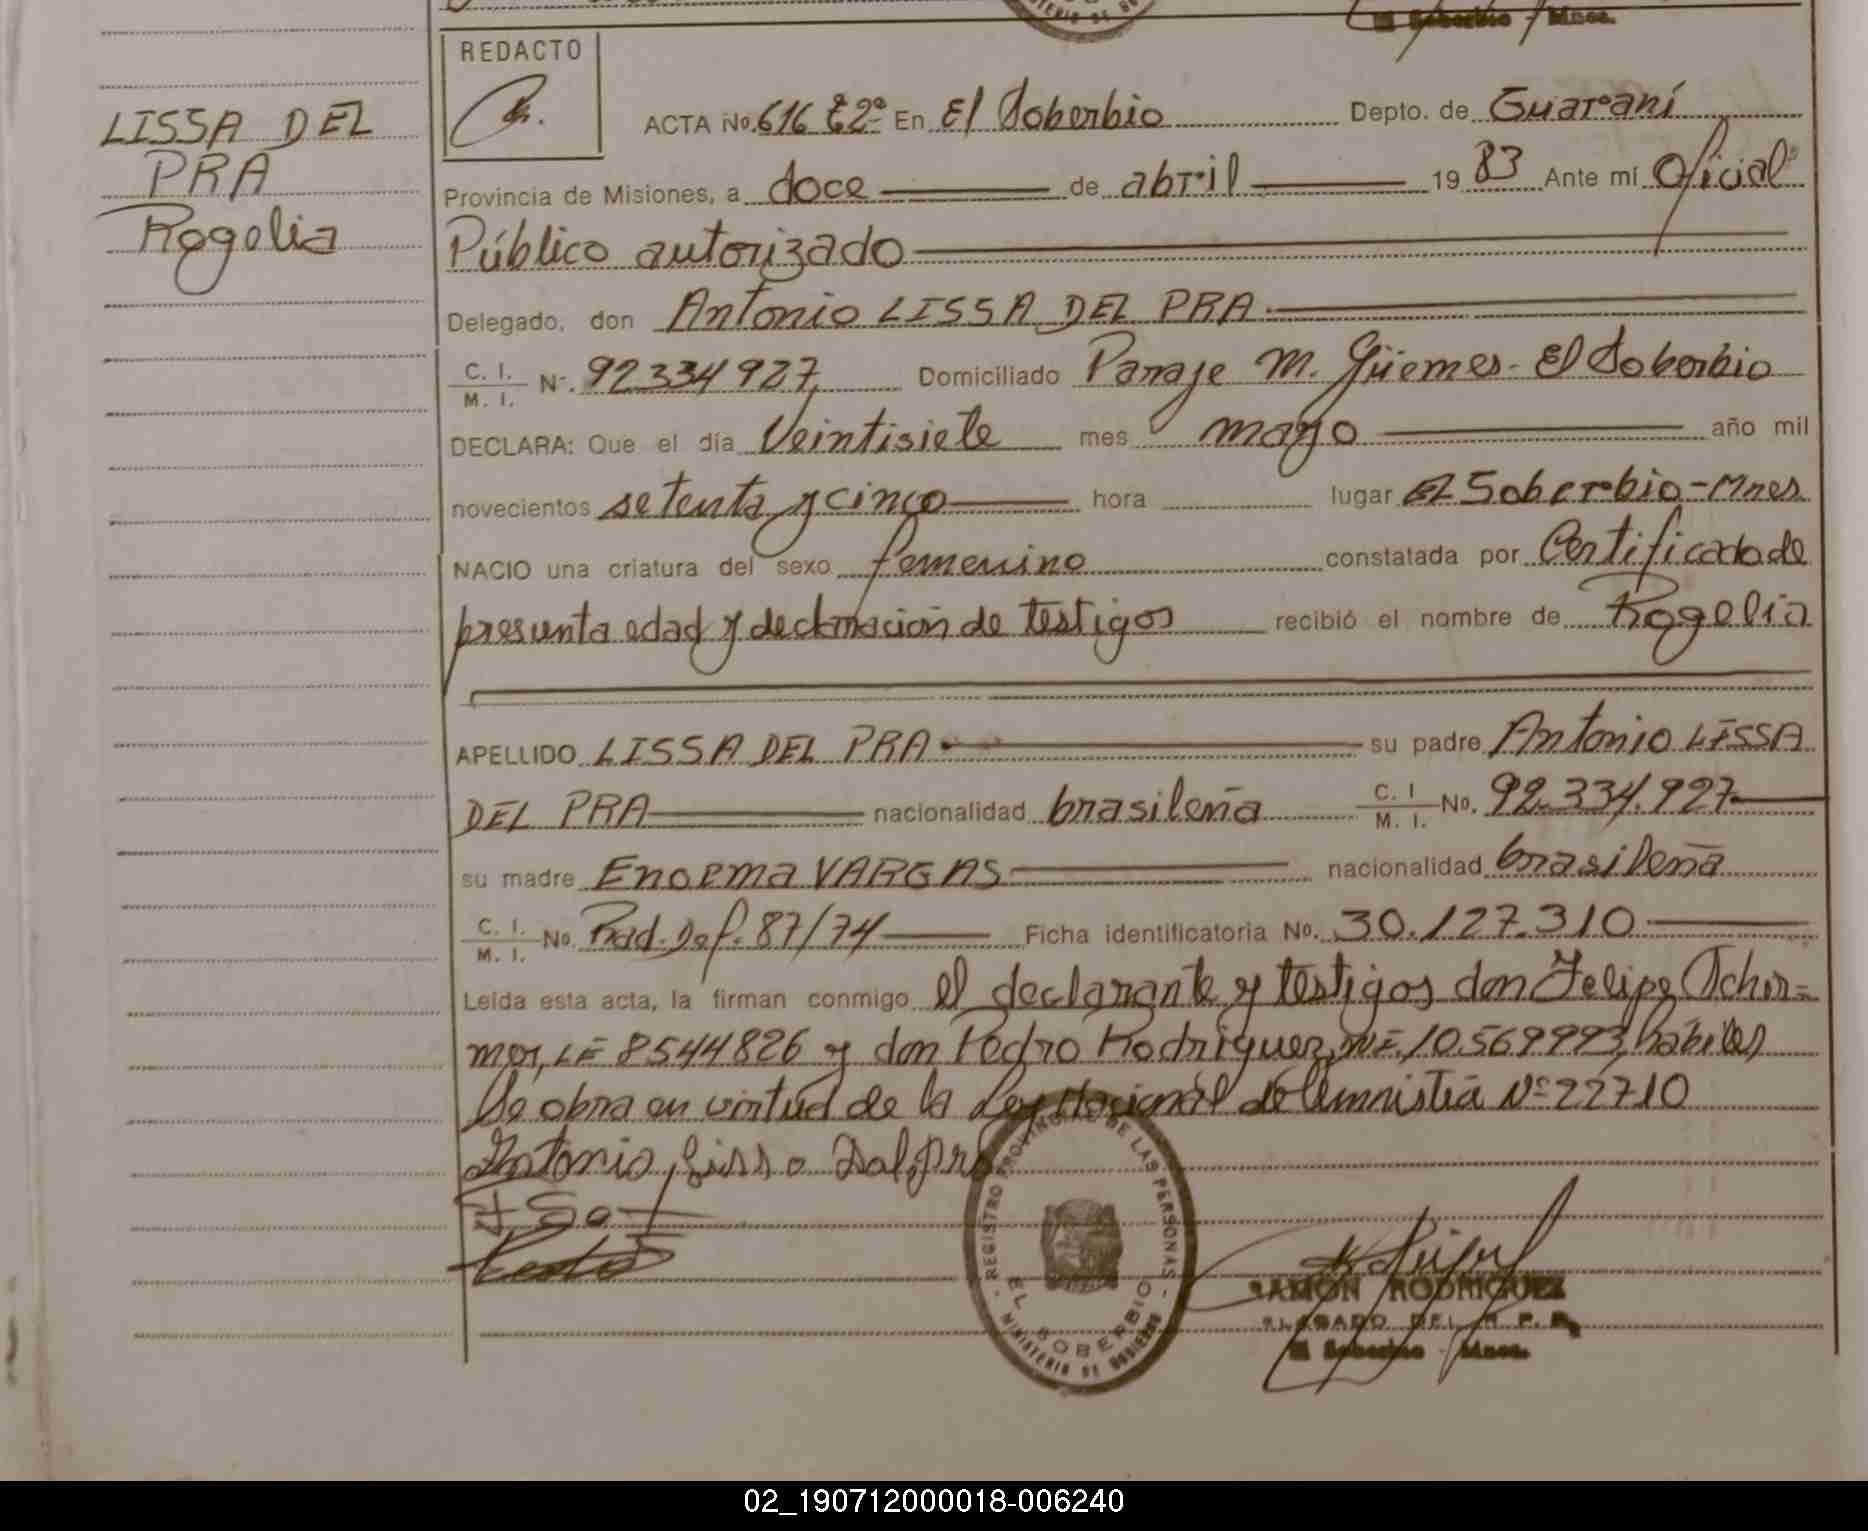 REDACTO
LISSA DEL
PRA
Rogelia
ACTA No. 616 Eº En El Soberbio Depto. de Guaraní
Provincia de Misiones, a doce de abril 1983 Ante mí Oficial
Público autorizado
Delegado, don Antonio LISSA DEL PRA
C. I. / M. I. Nº. 92334927, Domiciliado Paraje M. Güemes - El Soberbio
DECLARA: Que el día Veintisiete mes mayo año mil
novecientos setenta y cinco hora lugar El Soberbio - Mnes
NACIO una criatura del sexo femenino constatada por Certificado de
presunta edad y declaración de testigos recibió el nombre de Rogelia
APELLIDO LISSA DEL PRA su padre Antonio LISSA
DEL PRA nacionalidad brasileña C. I / M. I. No. 92.334.927
su madre Enorma VARGAS nacionalidad brasileña
C. I. / M. I. No. Rad. Def. 87/74 Ficha identificatoria No. 30.127.310
Leída esta acta, la firman conmigo el declarante y testigos don Felipe Schir=
mer, LE 8544826 y don Pedro Rodriguez, MI. 10.569993, hábiles
Se obra en virtud de la Ley Nacional de Amnistia Nº 22710
Antonio Lissa Dal Pra
REGISTRO PROVINCIAL DE LAS PERSONAS
EL SOBERBIO
MINISTERIO DE GOBIERNO
RAMON RODRIGUEZ
DELEGADO DEL R. P. P.
El Soberbio - Mnes.
02_190712000018-006240